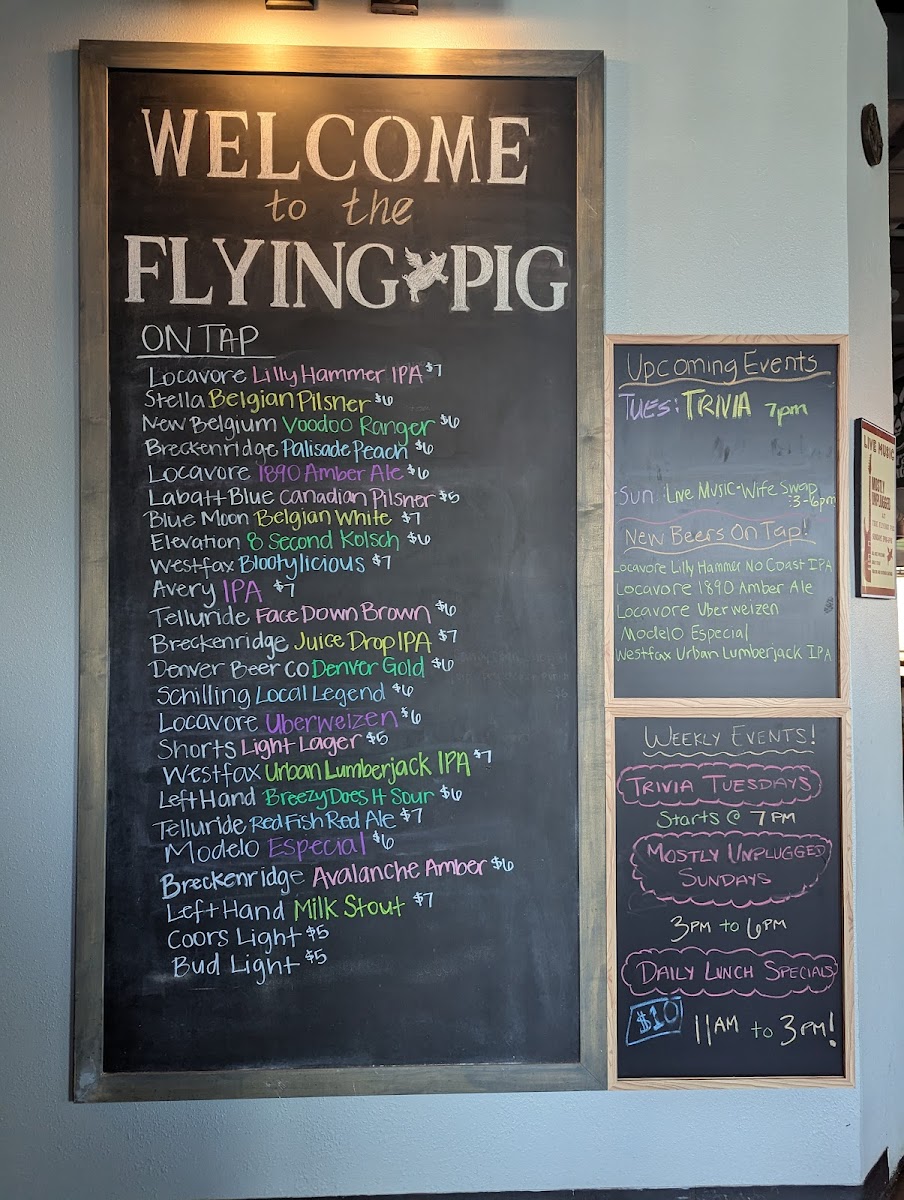 WELCOME
to the
FLYING PIG
ON TAP
Locavore Lilly Hammer IPA $7
Stella Belgian Pilsner $6
New Belgium Voodoo Ranger $6
Breckenridge Palisade Peach $6
Locavore 1890 Amber Ale $6
Labatt Blue Canadian Pilsner $5
Blue Moon Belgian White $7
Elevation 8 Second Kolsch $6
Westfax Blootylicious $7
Avery IPA $7
Telluride Face Down Brown $6
Breckenridge Juice Drop IPA $7
Denver Beer Co Denver Gold $6
Schilling Local Legend $6
Locavore Uberweizen $6
Shorts Light Lager $5
Westfax Urban Lumberjack IPA $7
Left Hand Breezy Does It Sour $6
Telluride Red Fish Red Ale $7
Modelo Especial $6
Breckenridge Avalanche Amber $6
Left Hand Milk Stout $7
Coors Light $5
Bud Light $5
Upcoming Events
TUES: TRIVIA 7pm
Sun: Live Music-Wife Swap
:3-6pm
New Beers On Tap!
Locavore Lilly Hammer No Coast IPA
Locavore 1890 Amber Ale
Locavore Uberweizen
Modelo Especial
Westfax Urban Lumberjack IPA
Weekly Events!
Trivia Tuesdays
Starts @ 7 PM
Mostly Unplugged
Sundays
3PM to 6PM
Daily Lunch Specials
$10 11AM to 3PM!
LIVE MUSIC
MOSTLY
UNPLUGGED